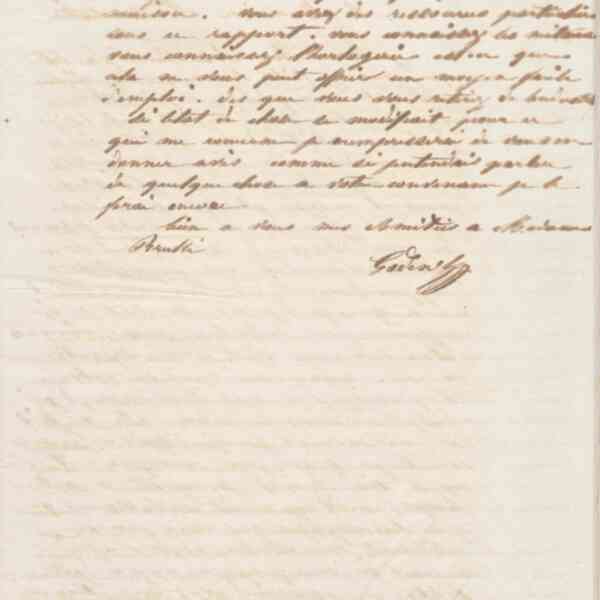 maison. vous avez des ressources particulières
sous ce rapport. vous connaissez les métaux
vous connaissez l'horlogerie est ce que
cela ne vous peut offrir un moyen facile
d'emploi. dès que vous vous
Si l'état de chose se modifiait pour ce
qui me concerne je m'empresserai de vous en
donner avis comme si j'entendais parler
de quelque chose a votre convenance je le
ferai encore
bien a vous mes amitiés a Madame

Godin